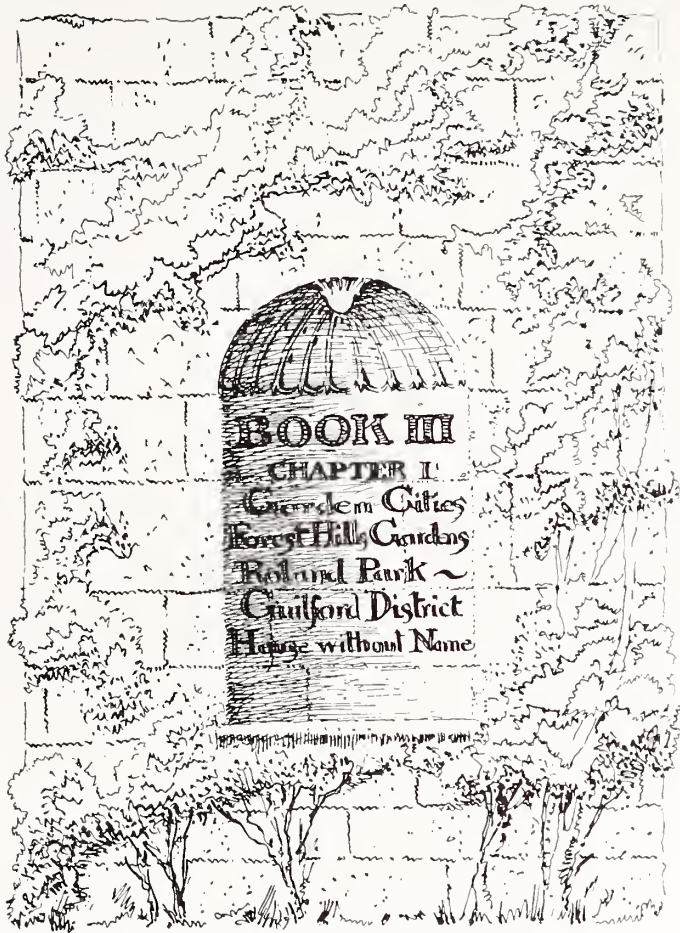 BOOK III
CHAPTER I
Garden Cities
Forest Hills Gardens
Roland Park ~
Guilford District
House without Name